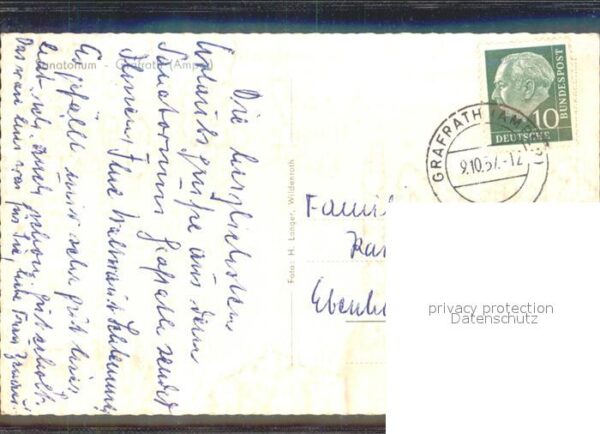 Sanatorium - Grafrath (Amper)
Die herzlichsten
Urlaubsgrüße aus dem
Sanatorium Grafrath sendet
Ihnen Ihre
Es gefällt mir sehr gut hier,
schon gut erholt.
Das wäre was für Sie, liebe Frau
Foto: H. Langer, Wildenroth
GRAFRATH (AMPER)
9.10.57.-12
10
DEUTSCHE
BUNDESPOST
Famil
Ebenh
privacy protection
Datenschutz